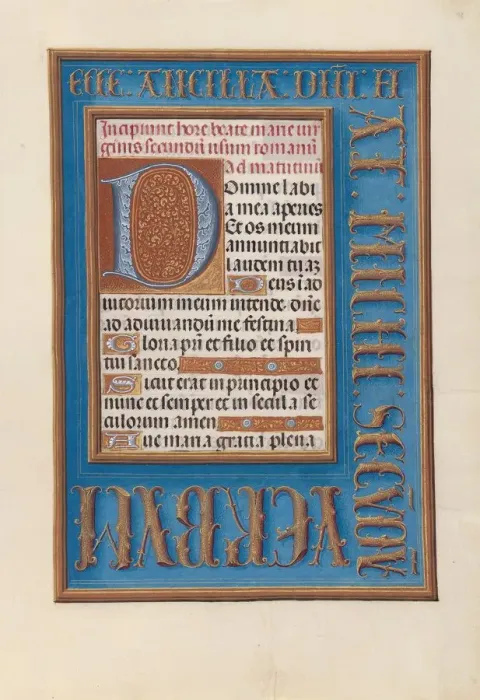 ECCE · ANCILLA · DÑI · FI
AT · MICHI ·
VERBVM
Incipiunt hore beate marie vir
ginis secundū usum romanū
Ad matutinū
Domine labi
a mea aperies
Et os meum
annuntiabit
laudem tuaȝ
Deus ī ad
iutorium meum intende · dñe
ad adiuuandū me festina ·
Gloria pr̄i et filio et spiri
tui sancto ·
Sicut erat in principio et
nunc et semper et in secula se
culorum amen
Aue maria gratia plena